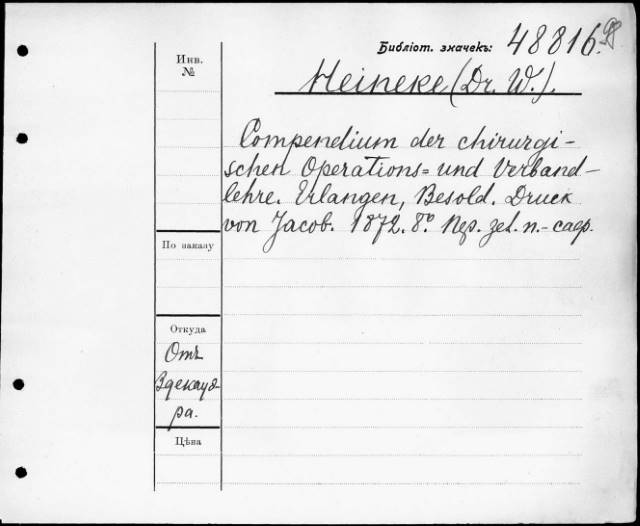 Библіот. значекъ: 48816.
Инв.
№
Heineke (Dr. W.).
Compendium der chirurgi-
schen Operations= und Verband-
lehre. Erlangen, Besold. Druck
von Jacob. 1872. 8.° Пер. зел. п.-
По заказу
Откуда
Отъ
ра.
Цѣна